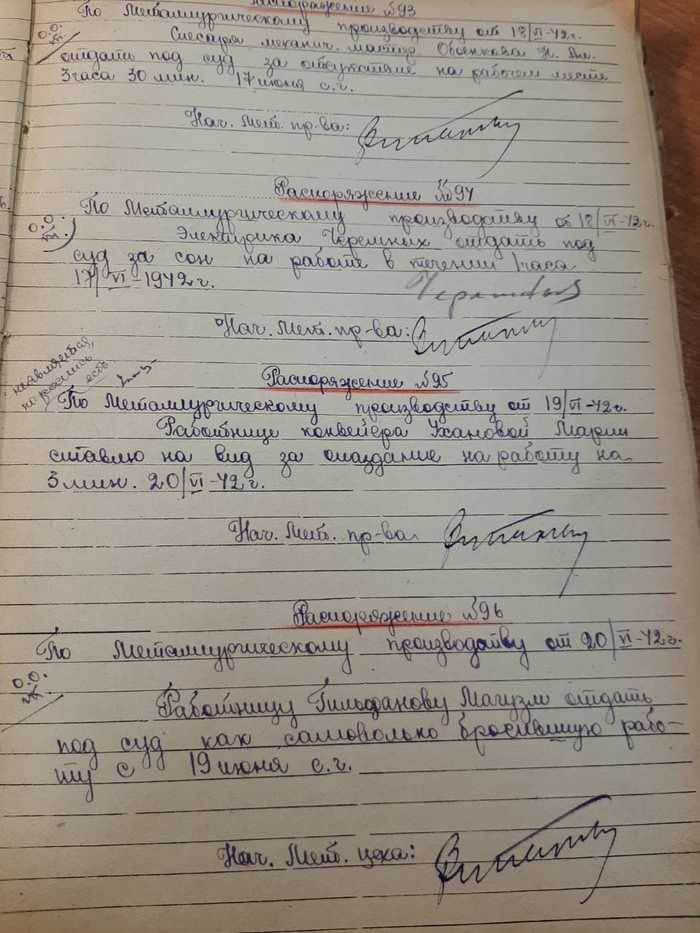 Распоряжение №93
По Металлургическому производству от 18/VI-42г.
О.О.
Слесаря механич. мастер Овсенкова Н. Ян.
отдать под суд за отсутствие на рабочем месте
3 часа 30 мин. 17 июня с.г.
Нач. Мет. пр-ва:
Распоряжение №94
По Металлургическому производству от 18/VI-42г.
О.О.
Электрика Черемных отдать под
суд за сон на работе в течении 1 часа
17/VI-1942г.
Нач. Мет. пр-ва:
Распоряжение №95
есть.
По Металлургическому производству от 19/VI-42г.
Работнице конвейера Ухановой Марии
ставлю на вид за опоздание на работу на
3 мин. 20/VI-42г.
Нач. Мет. пр-ва:
Распоряжение №96
По Металлургическому производству от 20/VI-42г.
О.О.
Работницу Гильфанову Магузю отдать
под суд как самовольно бросившую рабо-
ту с 19 июня с.г.
Нач. Мет. цеха: